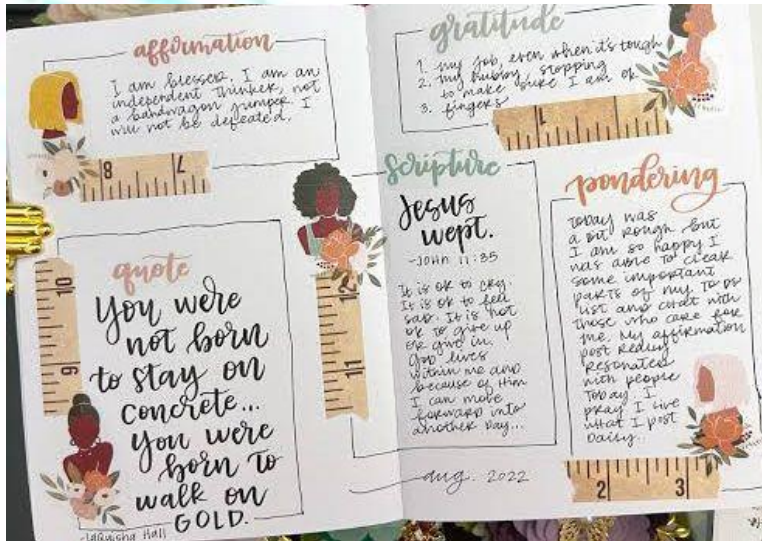 affirmation
I am blessed. I am an
independent thinker, not
a bandwagon jumper. I
will not be defeated.
8 7
quote
You were
not born
to stay on
concrete...
You were
born to
walk on
GOLD.
-laQuisha Hall
10
9
gratitude
1. my job, even when it's tough
2. my hubby stopping
to make sure I am ok
3. fingers
1
scripture
Jesus
wept.
-JOHN 11:35
It is ok to cry.
It is ok to feel
sad. It is not
ok to give up
or give in.
God lives
within me and
because of Him
I can move
forward into
another day...
11
pondering
Today was
a bit rough but
I am so happy I
was able to clear
some important
parts of my to do
list and chat with
those who care for
me. My affirmation
post really
resonated
with people
today. I
pray I live
what I post
daily..
aug. 2022
2 3